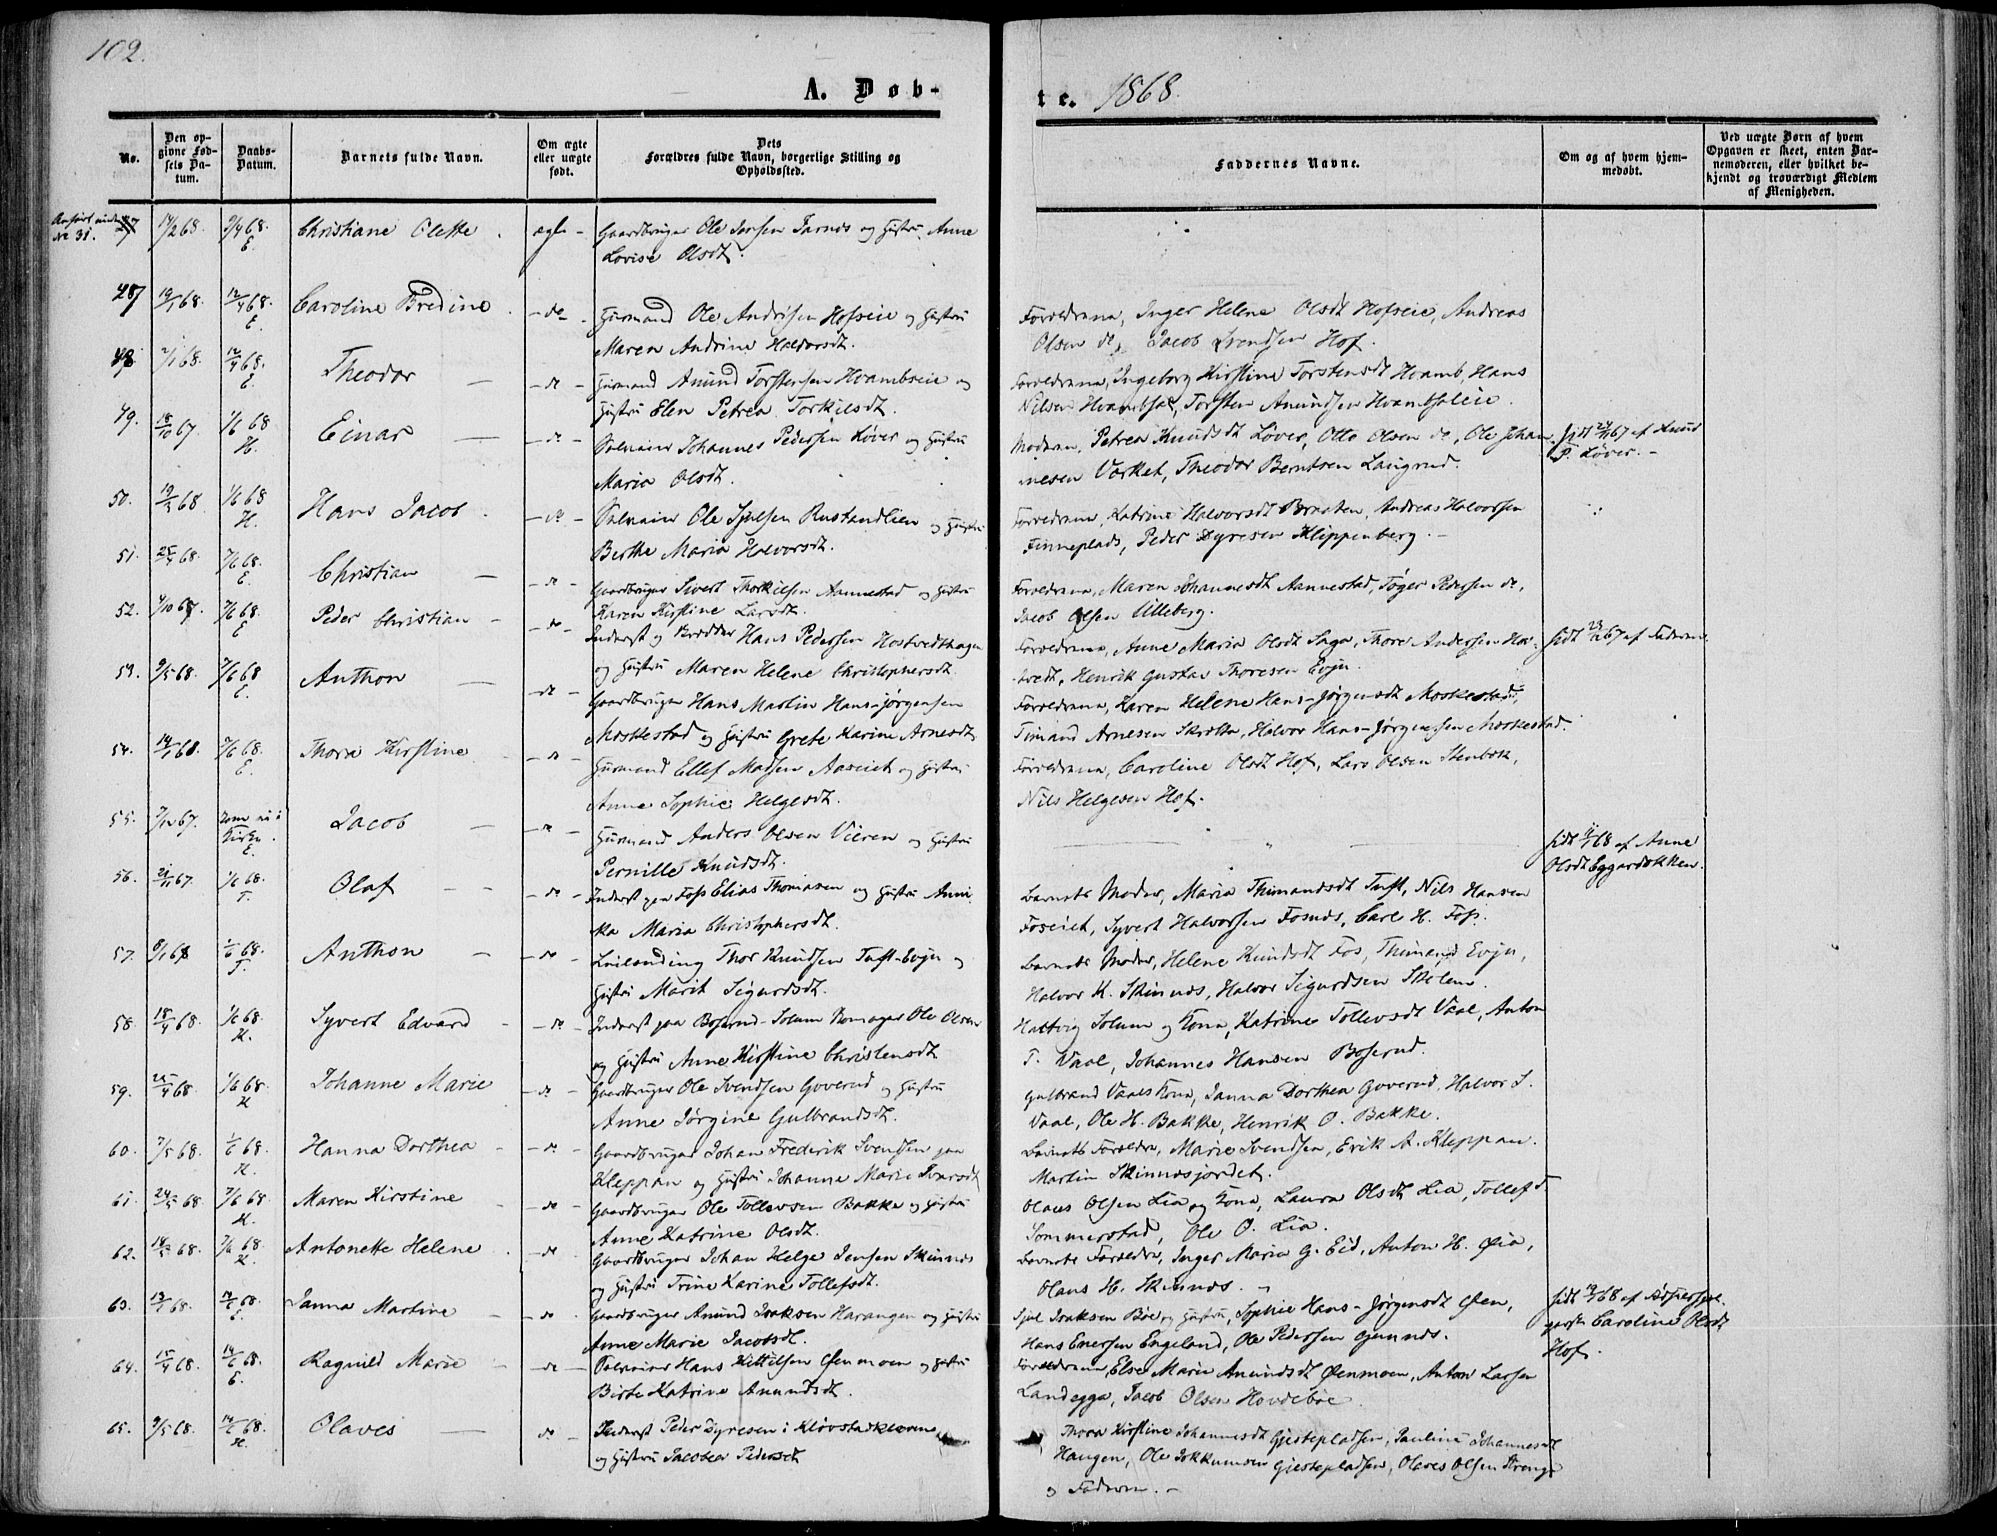 102.
A. Døb-
te. 1868.
No.
Den opgivne Fødsels Datum.
Daabs-Datum.
Barnets fulde Navn.
Om ægte eller uægte født.
Dets Forældres fulde Navn, borgerlige Stilling og Opholdssted.
Faddernes Navne.
Om og af hvem hjemmedøbt.
Ved uægte Børn af hvem Opgaven er skeet, enten Barnemoderen, eller hvilket bekjendt og troværdigt Medlem af Menigheden.
Anført under
No 31.
Christiane Olette
Gaardbruger Ole Jensen Tarnes og Hustru Anne
Lovise Olsdt.
47 19/1 68. 12/4 68. E. Caroline Bredine - do -
Huusmand Ole Andersen Hofseie og Hustru
Maren Andrine Haldorsdt.
Forældrene, Inger Helene Olsdt Hofseie, Andreas
Olsen do, Jacob Svendsen Hof.
48 12/4 68. E. Theodor - do -
Huusmand Amund Torstensen Hvambseie og
Hustru Elen Petrea Torkilsdt.
Forældrene, Ingeborg Kirstine Torstensdt Hvamb, Hans
Nilsen Hvambsal, Torsten Amundsen Hvambsaleie.
49. 18/10 67. 1/6 68 H. Einar - do -
Selveier Johannes Pedersen Løver og Hustru
Maria Olsdt.
Moderen, Petrea Knudsdt Løver, Otto Olsen do, Ole Johan-
nesen Værket, Theodor Berntsen Laugrud.
hjdt 24/11 67 af Knud
P. Løver. -
50. 19/2 68 1/6 68 H. Hans Jacob. - do -
Selveier Ole Sjulsen Rustandlien og Hustru
Berthe Maria Halvorsdt.
Forældrene, Katrine Halvorsdt Braaten, Andreas Halvorsen
Finneplads, Peder Dyresen Klippenberg. -
51. 25/4 68. 7/6 68. E. Christian - do -
Gaardbruger Sivert Thorkilsen Aannestad og Hustru
Karen Kirstine Larsdt.
Forældrene, Maren Johannesdt Aannestad, Tøger Pedersen do,
Jacob Olsen Ulleberg.
52. 7/10 67. 7/6 68. E Peder Christian - do -
Inderst og Skrædder Hans Pedersen Hostvedthagen
og Hustru Maren Helene Christophersdt.
Forældrene, Anne Maria Olsdt Saga, Thore Andersen Ho-
tvedt, Henrik Gustav Thoresen Evju.
hjdt 23/12 67 af Faderen
53. 9/5 68. 7/6 68 E. Anthon - do -
Gaardbruger Hans Martin Hans-Jørgensen
Moskestad og Hustru Grete Karine Arnesdt.
Forældrene, Karen Helene Hans-Jørgensdt Moskestad,
Timand Arnesen Skrotta, Halvor Hans-Jørgensen Moskestad.
54. 7/6 68. E. Thora Kirstine - do -
Huusmand Ellef Madsen Aaseiet og Hustru
Anne Sophie Helgesdt.
Forældrene, Caroline Olsdt Hof, Lars Olsen Stenbek,
Nils Helgesen Hof.
55. 7/12 67. Kom ei i
Kirken.
E. Jacob - do -
Huusmand Anders Olsen Vieren og Hustru
Pernille Knudsdt.
hjdt 68 af Anne
Olsdt Eggardsekken.
56. 21/11 67. 1/6 68. T. Olaf - do -
Inderst paa Foss Elias Thomasen og Hustru Anni-
ka Maria Christophersdt.
Barnets Moder, Maria Thimandsdt Tuft, Nils Hansen
Foseiet, Syvert Halvorsen Fosnes, Carl H. Foss.
57. 8/1 68 1/6 68. T. Anthon - do -
Leilænding Thor Knudsen Tuft-Evju og
Hustru Marit Sigurdsdt.
Barnets Moder, Helene Knudsdt Fos, Thimand Evju,
Halvor K. Skinnes, Halvor Sigurdsen Skelem.
58. 18/4 68. 1/6 68. K. Syvert Edvard - do -
Inderst paa Boserud-Solum Skomager Ole Olsen
og Hustru Anne Kirstine Christensdt.
Hartvig Solum og Kona, Katrine Tollevsdt Vaal, Anton
T. Vaal, Johannes Hansen Boserud.
59. 25/4 68. 1/6 68. K Johanne Marie - do -
Gaardbruger Ole Svendsen Goverud og Hustru
Anne Jørgine Gulbrandsdt.
Gulbrand Vaals Kona, Janna Dorthea Goverud, Halvor S.
Vaal, Ole H. Bakke, Henrik O. Bakke.
60. 7/5 68. 1/6 68. K. Hanna Dorthea - do -
Gaardbruger Johan Frederik Svendsen paa
Kleppan og Hustru Johanne Marie Ivarsdt
Barnets Forældre, Marie Svendsen, Erik A. Kleppan.
Martin Skinnesjordet.
61. 7/6 68. K. Maren Kirstine - do -
Gaardbruger Ole Tollevsen Bakke og Hustru
Anne Katrine Olsdt.
Olaus Olsen Lia og Kona, Laura Olsdt Lia, Tollef T.
Sommerstad, Ole O. Lia.
62. 7/6 68 K. Antonette Helene - do -
Gaardbruger Johan Helge Jensen Skinnes
og Hustru Trine Karine Tollefsdt.
Barnets Forældre, Inger Maria G. Eid, Anton H. Øia,
Olaus H. Skinnes.
63. 14/6 68. E. Janna Martine - do -
Gaardbruger Amund Isaksen Harangen og Hustru
Anne Marie Jacobsdt.
Sjul Isaksen Bøe og Hustru, Sophie Hans-Jørgensdt Øen,
Hans Enersen Engeland, Ole Pedersen Gunnes.
hjdt 68 af
Caroline Olsdt
Hof.
64. 15/4 68. 14/6 68. E. Ragnild Marie - do -
Selveier Hans Kittilsen Øenmoen og Hustru
Birte Katrine Amundsdt.
Forældrene, Else Marie Amundsdt Øenmoen, Anton Larsen
Landegga, Jacob Olsen Hovdebøe
65. 9/5 68. 14/6 68. K. Olaves - do -
Inderst Peder Dyresen i Kløvstadkleven
og Hustru Jacobea Pedersdt
Thora Kirstine Johannesdt Gjestepladsen, Pauline Johannesdt
Haugen, Ole Jokkumsen Gjestepladsen, Olaves Olsen Strenge
og Faderen. -